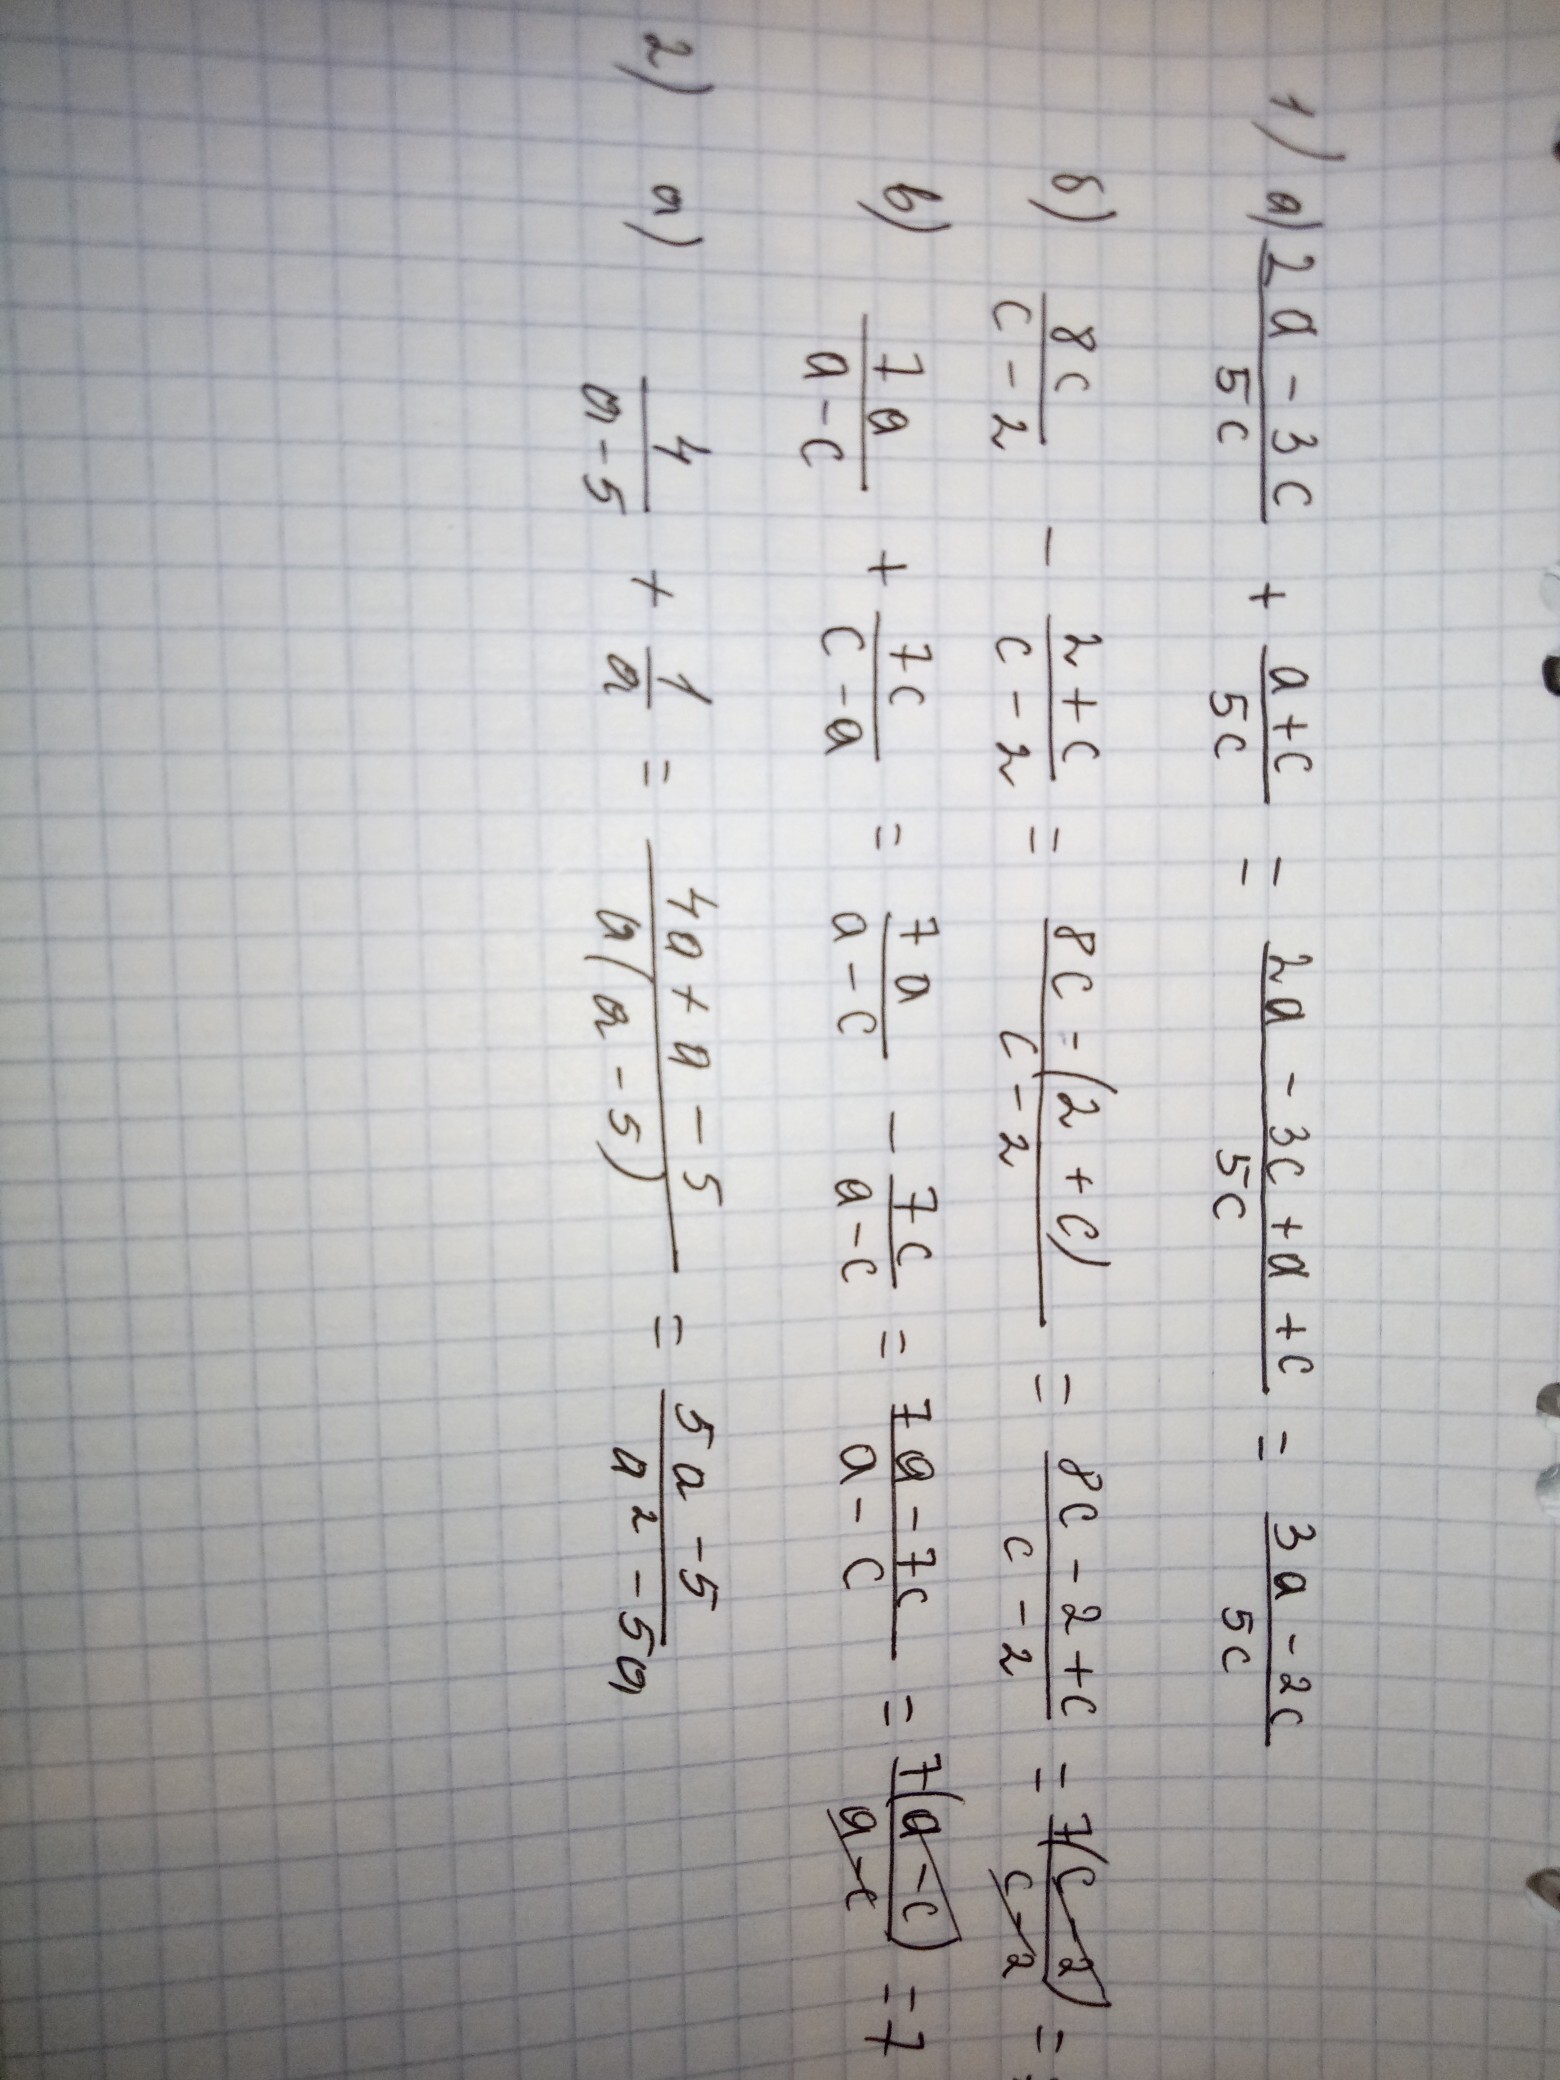 1) а) (2a - 3c)/(5c) + (a+c)/(5c) = (2a - 3c + a + c)/(5c) = (3a - 2c)/(5c)
б) (8c)/(c - 2) - (2 + c)/(c - 2) = (8c - (2 + c))/(c - 2) = (8c - 2 + c)/(c - 2) = (7(c - 2))/(c - 2) =
в) (7a)/(a - c) + (7c)/(c - a) = (7a)/(a - c) - (7c)/(a - c) = (7a - 7c)/(a - c) = (7(a - c))/(a - c) = 7
2) а) 4/(a - 5) + 1/a = (4a + a - 5)/(a(a - 5)) = (5a - 5)/(a² - 5a)